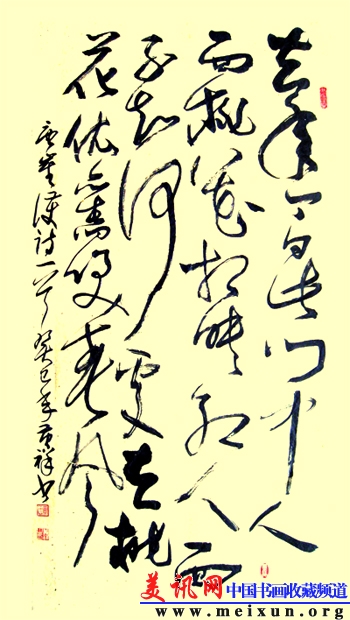 去年今日此門中人
面桃花相映紅人面
不知何處去桃
花依舊笑春風
唐崔護詩一首癸巳年祥書
美讯网 中国书画收藏频道
www.meixun.org